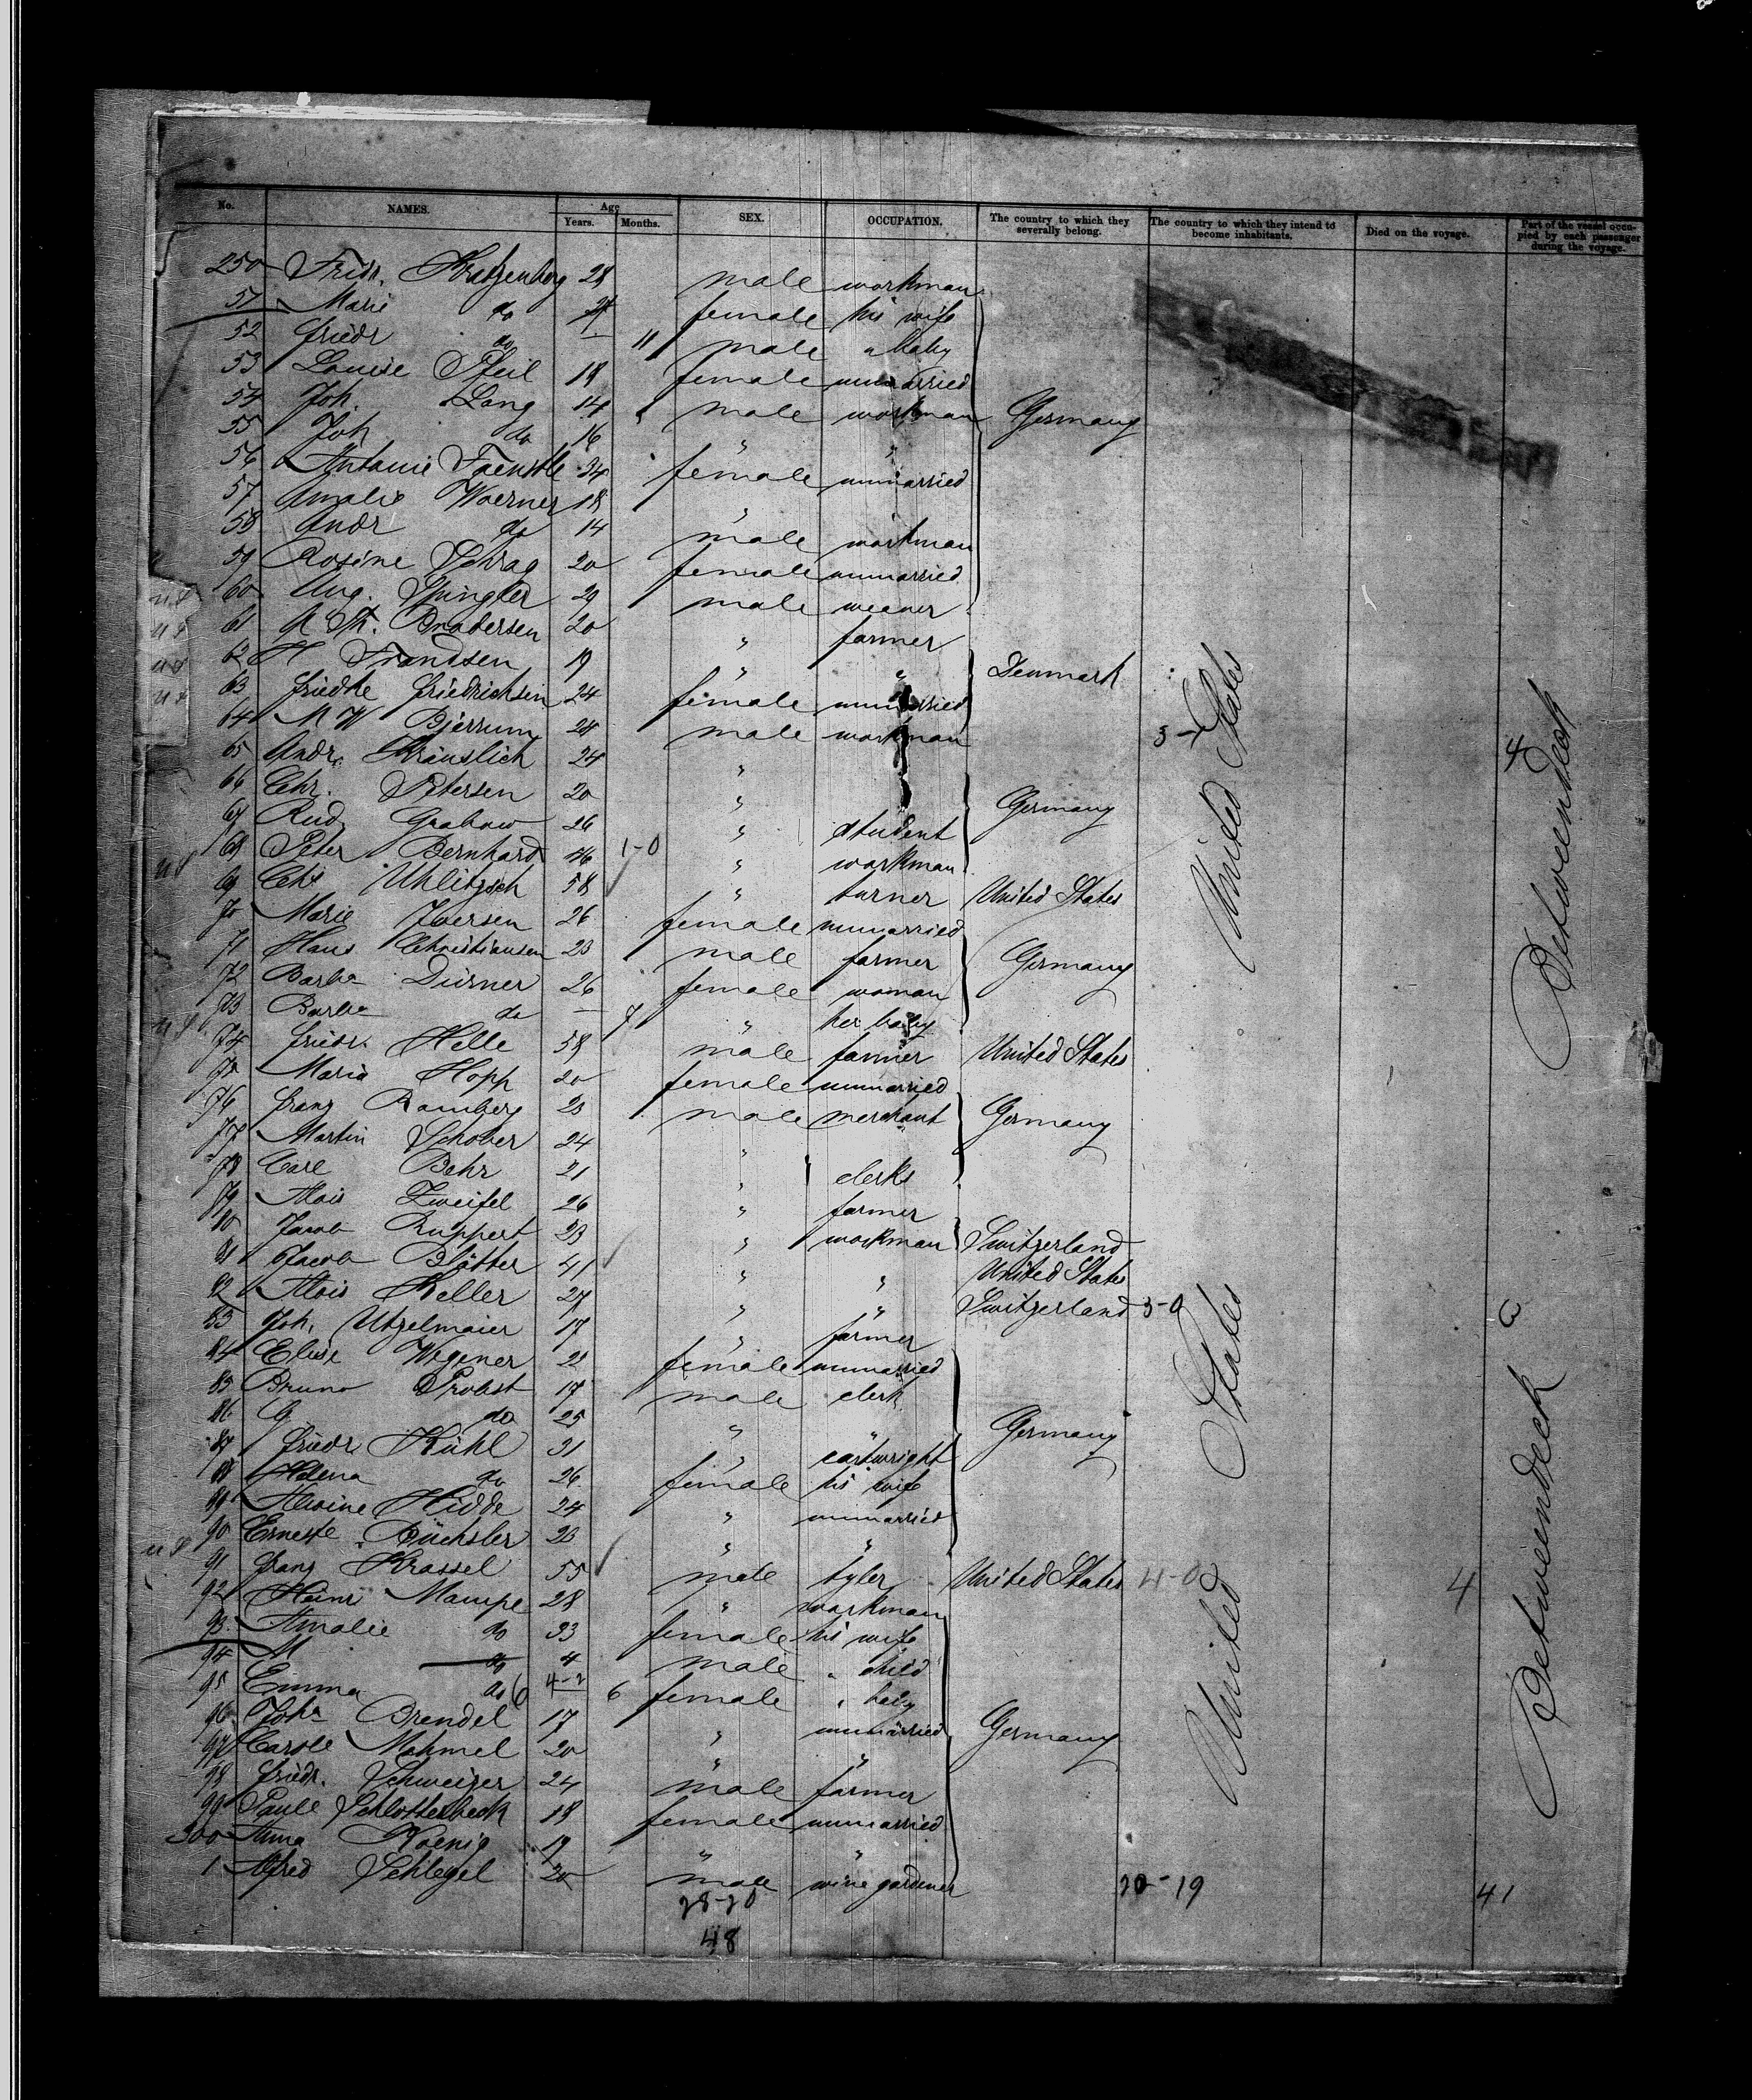 No. NAMES. Age Years. Months. SEX. OCCUPATION. The country to which they severally belong. The country to which they intend to become inhabitants. Died on the voyage. Part of the vessel occupied by each passenger during the voyage.
250 Friedr. Kratzenberg 28 male workman
51 Marie do female his wife
52 Friedr do — 11 male " baby
53 Louise Pfeil 18 female unmarried
54 Joh. Lang 14 male workman Germany
55 Joh do 16 " "
56 Antonie 34 female unmarried
57 Amalie Woerner 18 "
58 Andr do 14 male workman
59 Rosine Schrag 20 female unmarried
60 Aug. Spingler 29 male weaver
61 Brodersen 20 " farmer
62 H Frandsen 19 " " Denmark
63 Friedke Friedrichsen 24 female unmarried
64 M W Bjerrum 28 male workman
65 Andr. Kräuslich 24 "
66 Chr. Petersen 20 " Germany
67 Rud. Grabow 26 " student
68 Peter Bernhard 46 1-0 " workman
69 Chr Uhlitzsch 58 " turner United States
70 Marie Iversen 26 female unmarried
71 Hans Christiansen 23 male farmer Germany
72 Barba Dürner 26 female woman
73 Barba do — 7 " her baby
74 Friedr. Helle 58 male farmer United States
75 Maria Hopp 20 female unmarried
76 Franz Bamberg 23 male merchant Germany
77 Martin Schober 24 "
78 Carl Bahr 21 " clerks
79 Alois Zweifel 26 " farmer
80 Jacob Ruppert 23 " workman Switzerland
81 Jacob Blätter 41 " " United States
82 Alois Keller 27 " " Switzerland 3-0
83 Joh. Utzelmaier 17 " farmer
84 Elise Wegener 22 female unmarried
85 Bruno Probst 17 male clerk
86 G do 25 " " Germany
87 Friedr Kühl 31 " cartwright
88 Helena do 26 female his wife
89 Alwine Hidde 24 " unmarried
90 Erneste Büchsler 23 " "
91 Franz Krassel 55 male tyler United States 4-0 4
92 Heinr Mampe 28 " workman
93 Amalie do 33 female his wife
94 M do 4 male " child
95 Emma do 6 female " baby
96 Joha Brendel 17 " unmarried Germany
97 Carole Mahmel 20 " "
98 Friedr. Schweizer 24 male farmer
99 Paule Schlotterbeck 18 female unmarried
300 Anna Koenig 19 " "
1 Alfred Schlegel 20 male wine gardener 20-19 41
28-20
48
United States
United States
Betweendeck
Betweendeck